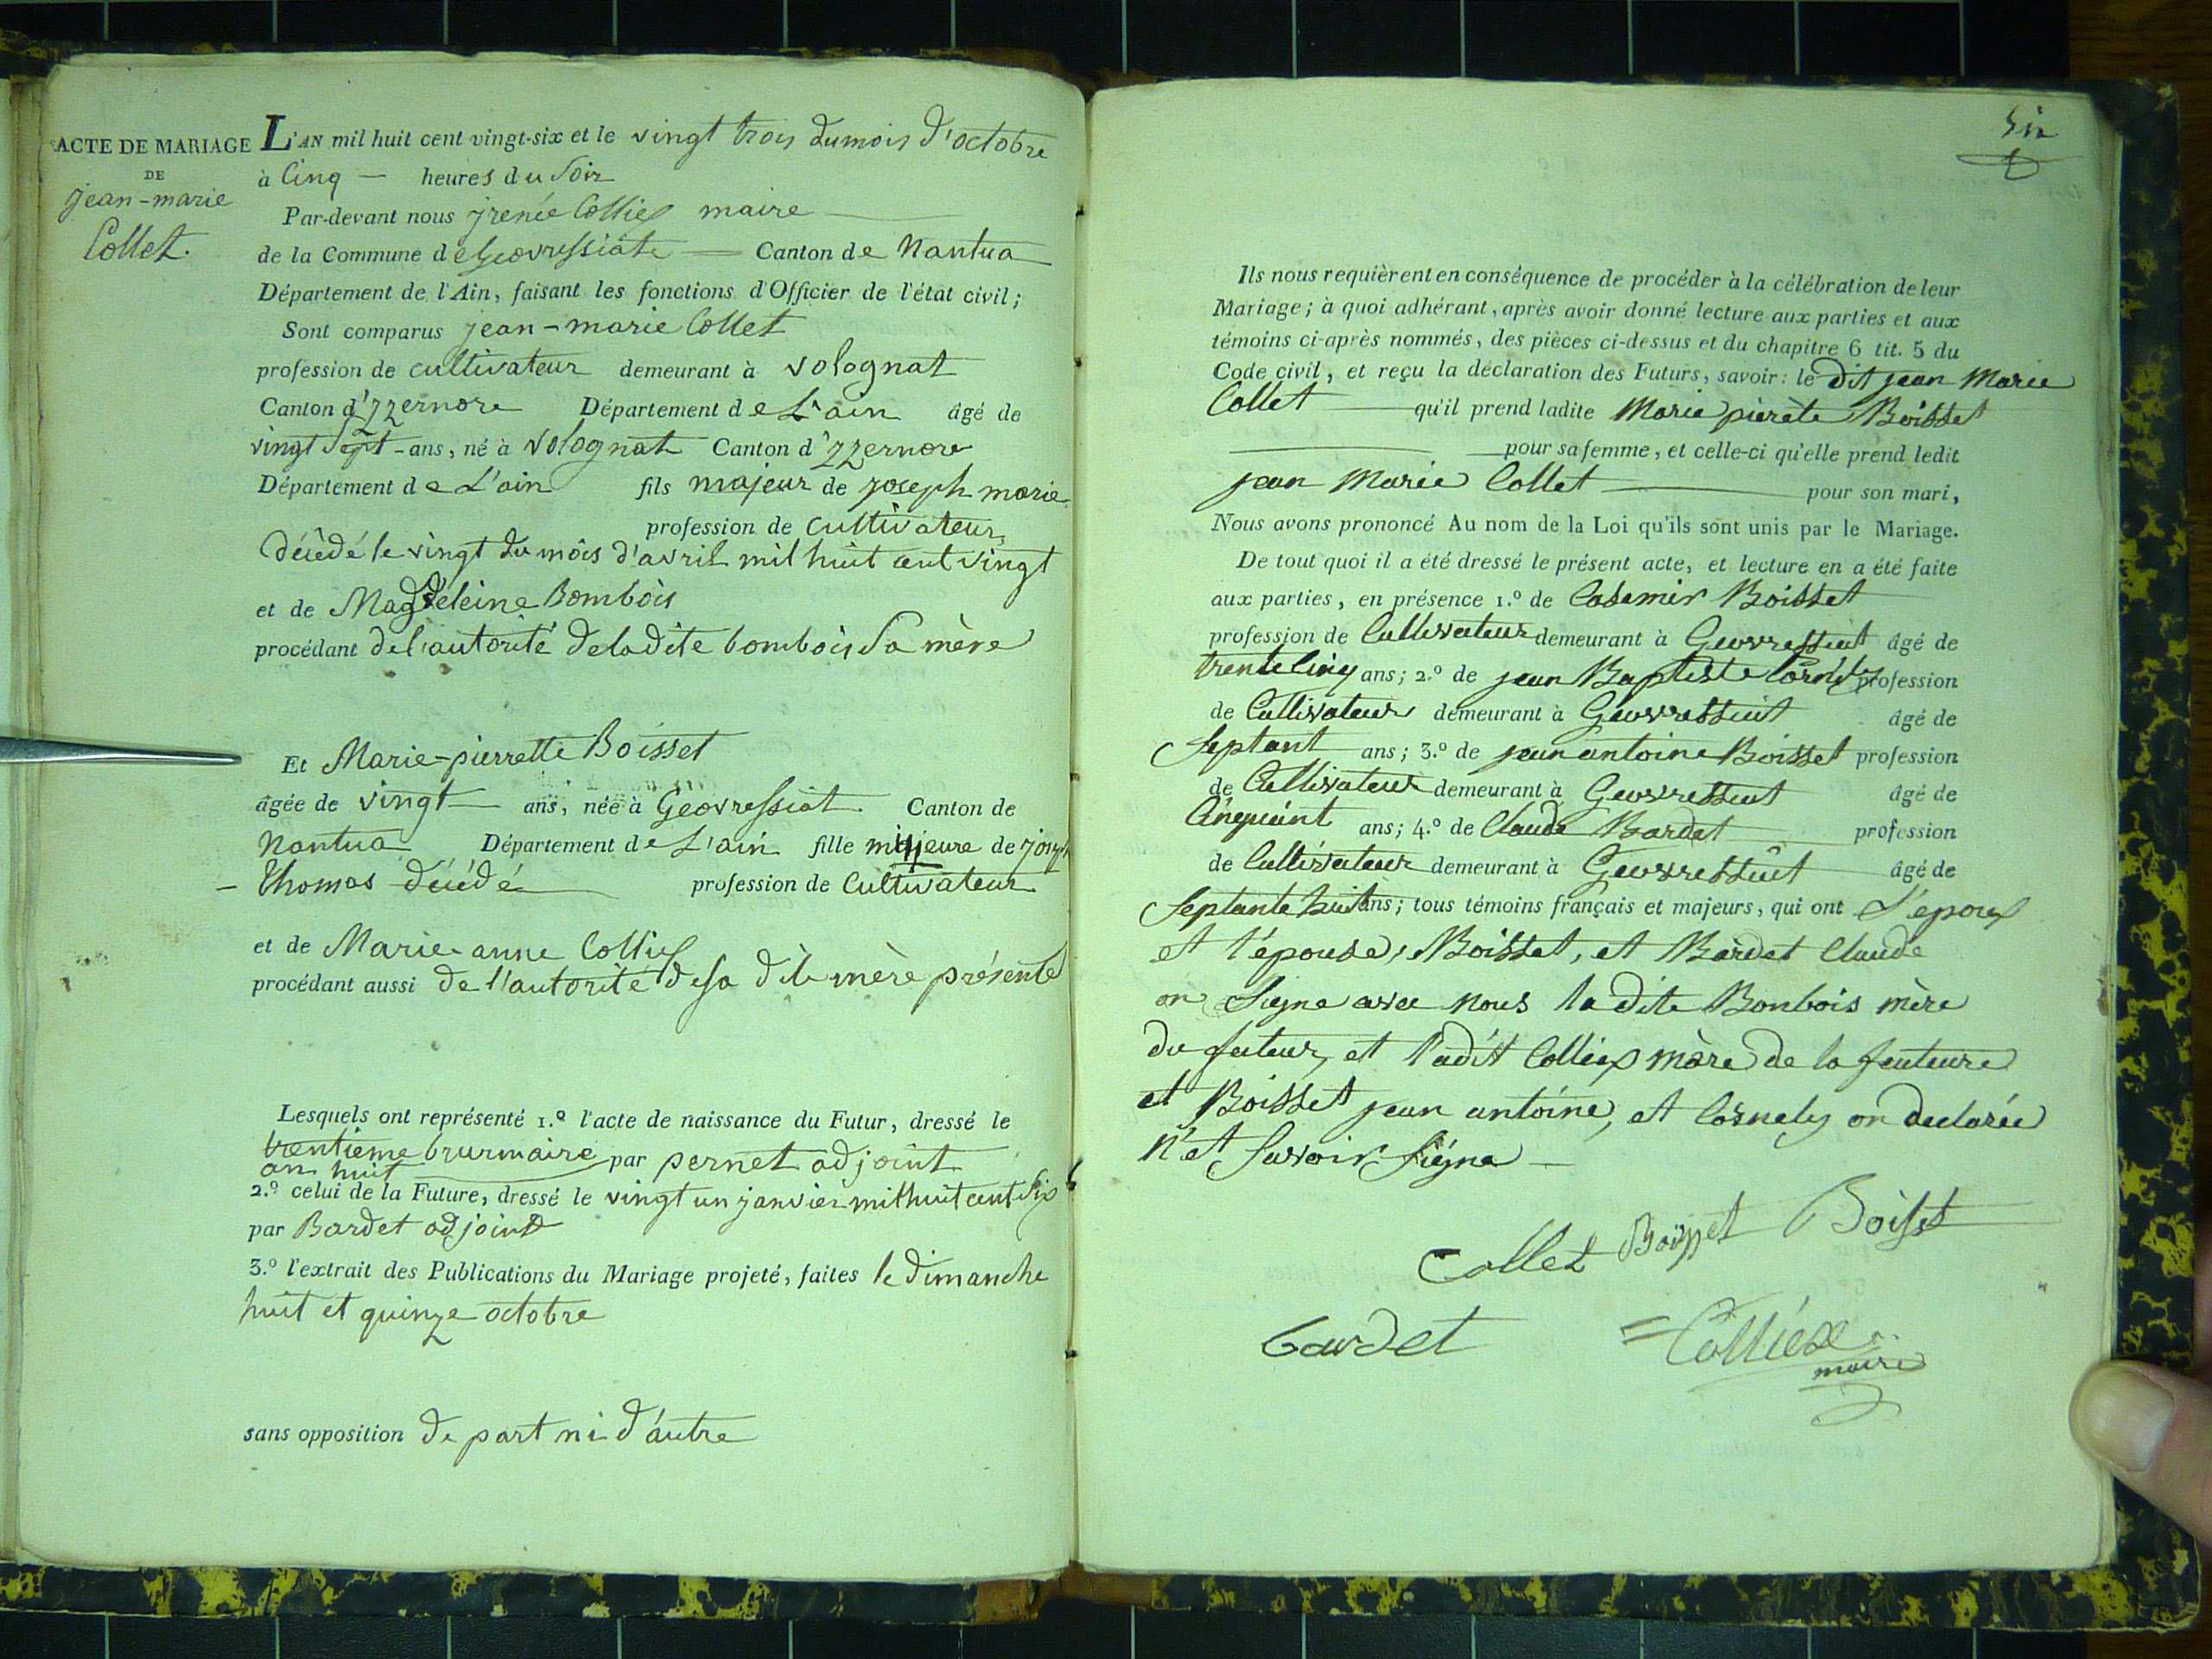 ACTE DE MARIAGE
DE
jean-marie
Collet.
L'AN mil huit cent vingt-six et le vingt trois du mois d'octobre
à Cinq — heures du Soir
Par-devant nous jrenée Colliex maire
de la Commune de Geovressiate — Canton de Nantua
Département de l'Ain, faisant les fonctions d'Officier de l'état civil ;
Sont comparus jean-marie Collet
profession de cultivateur demeurant à volognat
Canton d'yzernore Département de L'ain âgé de
vingt Sept - ans, né à volognat Canton d'yzernore
Département de L'ain fils majeur de joseph marie
profession de Cultivateur
décédé le vingt du mois d'avril mil huit cent vingt
et de Magdeleine Bombois
procédant de l'autorité de ladite bombois Sa mère
Et Marie-pierrette Boisset
âgée de vingt — ans, née à Geovressiat Canton de
Nantua Département de L'ain fille mineure de joseph
- thomas décédé profession de Cultivateur
et de Marie-anne Colliex
procédant aussi de l'autorité de sa dite mère présente
Lesquels ont représenté 1.º l'acte de naissance du Futur, dressé le
trentieme brurmaire par pernet adjoint
an huit
2.º celui de la Future, dressé le vingt un janvier mil huit cent six
par Bardet adjoint
3.º l'extrait des Publications du Mariage projeté, faites le dimanche
huit et quinze octobre
sans opposition de part ni d'autre
Six
Ils nous requièrent en conséquence de procéder à la célébration de leur
Mariage ; à quoi adhérant, après avoir donné lecture aux parties et aux
témoins ci-après nommés, des pièces ci-dessus et du chapitre 6 tit. 5 du
Code civil, et reçu la déclaration des Futurs, savoir : le dit jean Marie
Collet — qu'il prend ladite Marie pierète Boisset
— pour sa femme, et celle-ci qu'elle prend ledit
jean Marie Collet — pour son mari,
Nous avons prononcé Au nom de la Loi qu'ils sont unis par le Mariage.
De tout quoi il a été dressé le présent acte, et lecture en a été faite
aux parties, en présence 1.º de Casemir Boisset
profession de Cultivateur demeurant à Geovressiat âgé de
trente Cinq ans ; 2.º de jean Baptiste Cornely profession
de Cultivateur demeurant à Geovressiat âgé de
Septant ans ; 3.º de jean antoine Boisset profession
de Cultivateur demeurant à Geovressiat âgé de
Cinquant ans ; 4.º de Claude Bardet profession
de Cultivateur demeurant à Geovressiat âgé de
Septante huit ans ; tous témoins français et majeurs, qui ont L'epoux
et l'épouse, Boisset, et Bardet Claude
on Signe avec nous la dite Bonbois mère
du futeur, et ladit Colliex mère de la feuteure
et Boisset jean antoine, et Cornely on declarée
n'et Savoir Signe —
Collet Boisset Boisset
bardet = Colliex
maire